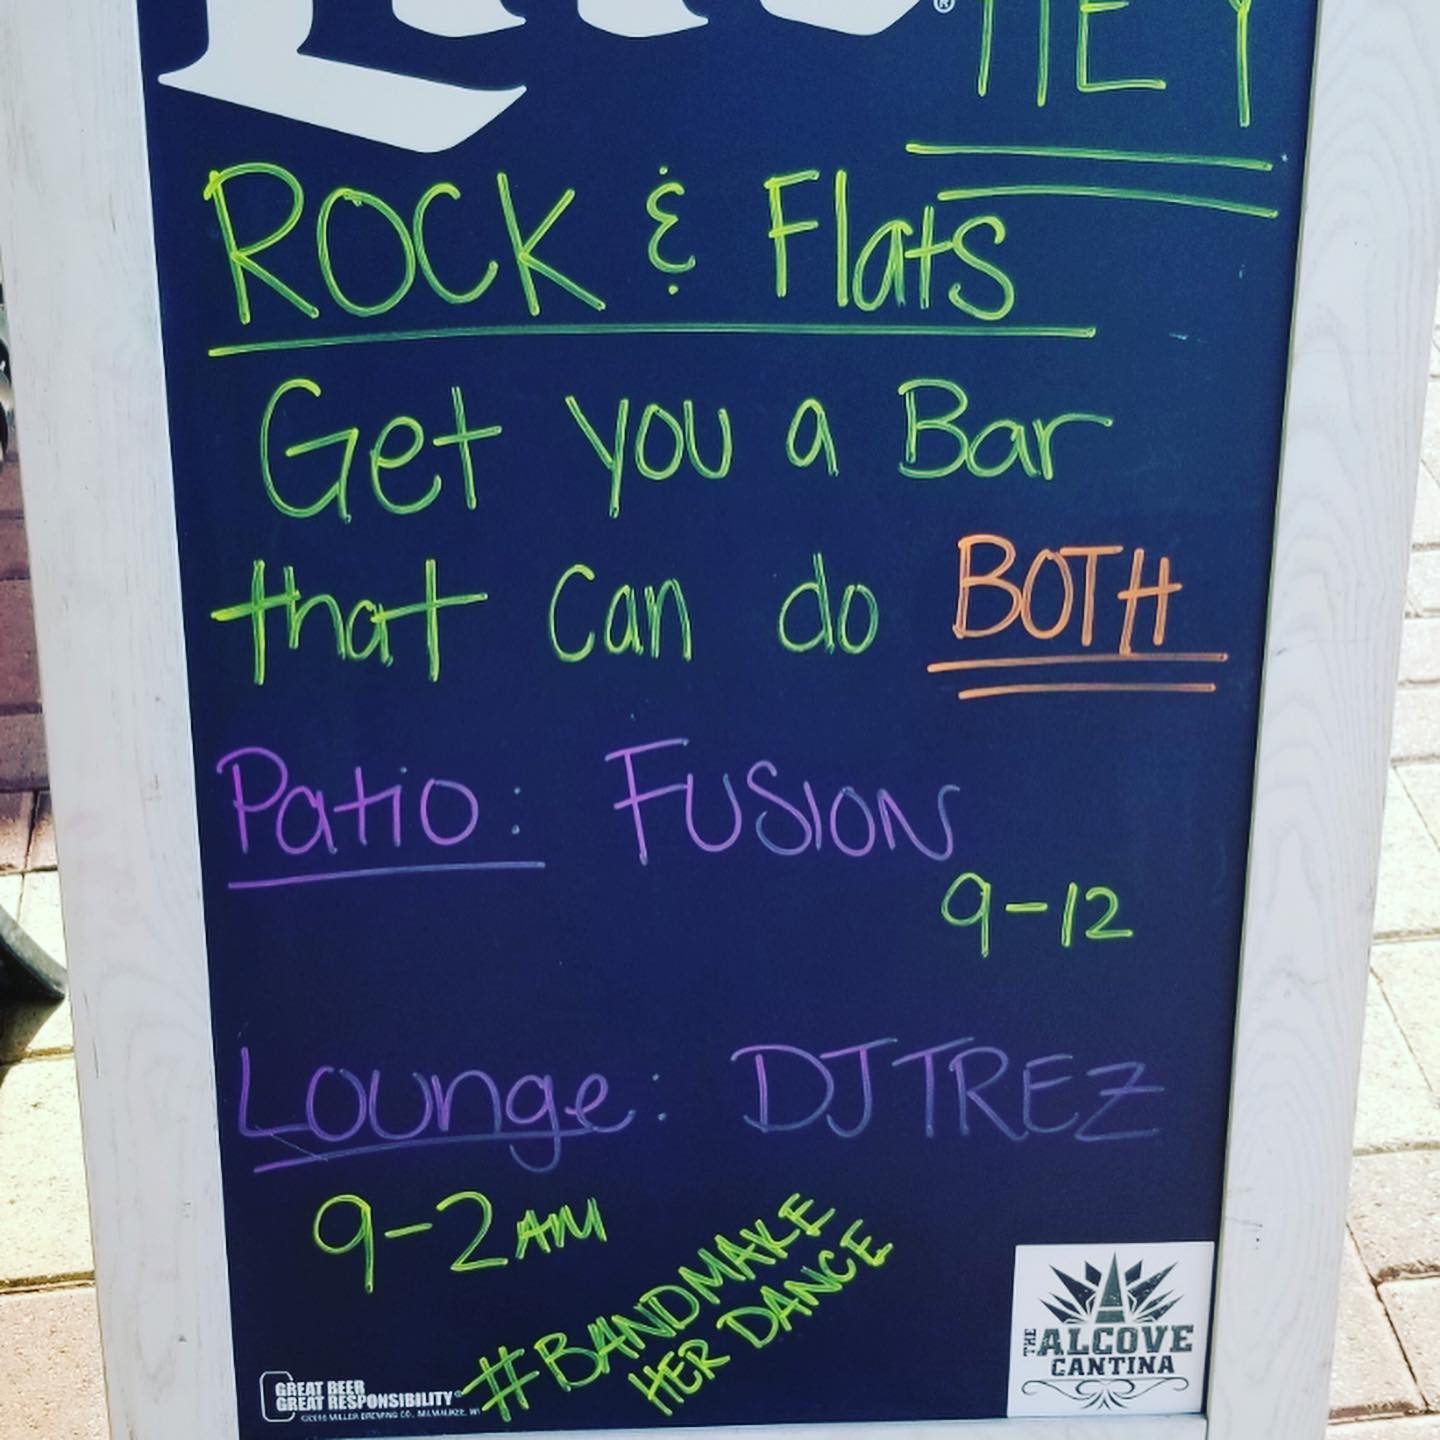 Lite®
HEY
ROCK & Flats
Get you a Bar
that can do BOTH
Patio: FUSION
9-12
Lounge: DJ TREZ
9-2AM
#BANDMAKE
HER DANCE
THE ALCOVE
CANTINA
GREAT BEER
GREAT RESPONSIBILITY®
MILLER BREWING CO., MILWAUKEE, WI